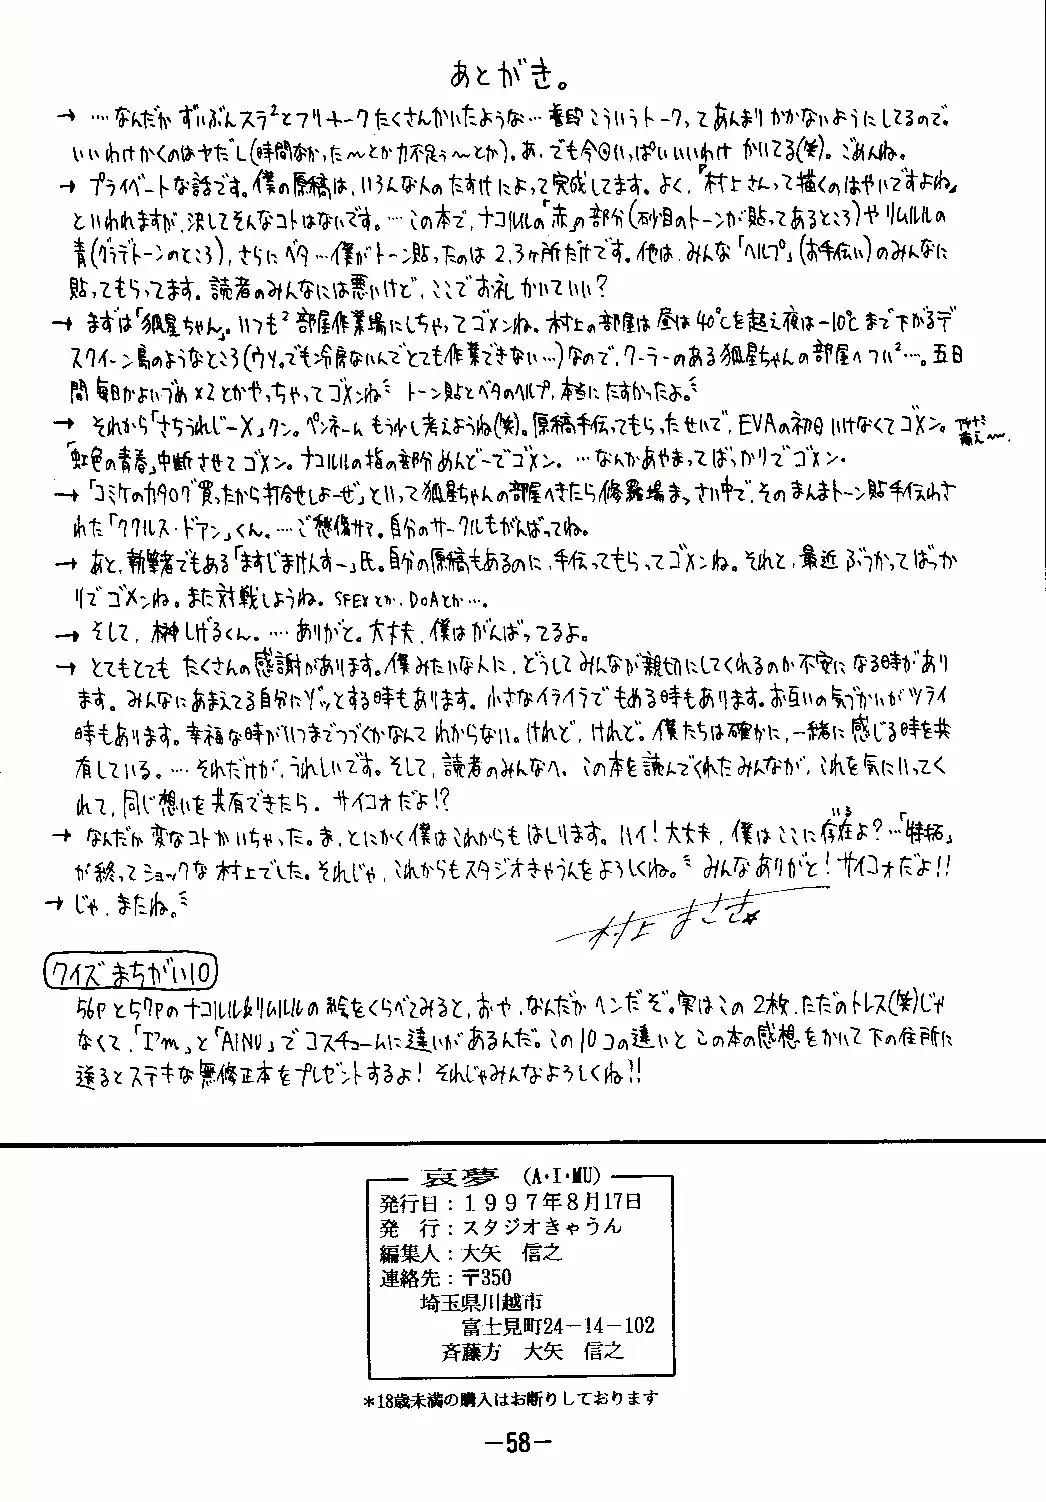 あとがき。
→ …なんだか ずいぶんスラ²とフリートークたくさんかいたような… 普段こういうトークってあんまりかかないようにしてるので。
いいわけかくのはヤだし(時間なかった〜とか力不足ぅ〜とか)。あ、でも今回いっぱいいいわけ かいてる(笑)。ごめんね。
→ プライベートな話です。僕の原稿は、いろんな人のたすけによって完成してます。よく、「村上さんって描くのはやいですよね」
といわれますが、決してそんなコトはないです。…この本で、ナコルルの「赤」の部分(砂目のトーンが貼ってあるところ)やリムルルの
青(グラデトーンのところ)、さらにベタ…僕がトーン貼ったのは2、3ヶ所だけです。他は、みんな「ヘルプ」(お手伝い)のみんなに
貼ってもらってます。読者のみんなには悪いけど、ここでお礼かいていい?
→ まずは「狐星ちゃん」。いつも² 部屋作業場にしちゃってゴメンね。村上の部屋は昼は40℃を超え夜は-10℃まで下がるデ
スクイーン島のようなところ(ウソ。でも冷房ないんでとても作業できない…)なので、クーラーのある狐星ちゃんの部屋へつい²…。五日
間毎日かよいづめ×2とかやっちゃってゴメンね トーン貼とベタのヘルプ、本当にたすかったよ。
→ それから「さちうれじーX」クン。ペンネームもう少し考えようね(笑)。原稿手伝ってもらったせいで、EVAの初日いけなくてゴメン。
「虹色の青春」中断させてゴメン。ナコルルの指の部分めんどーでゴメン。…なんかあやまってばっかりでゴメン。
→ 「コミケのカタログ買ったから打合せしよーぜ」といって狐星ちゃんの部屋へきたら修羅場まっさい中で、そのまんまトーン貼手伝わさ
れた「ククルス・ドアン」くん。…ご愁傷サマ。自分のサークルもがんばってね。
→ あと、執筆者でもある「ますじまけんすー」氏。自分の原稿もあるのに、手伝ってもらってゴメンね。それと、最近ぶつかってばっか
りでゴメンね。また対戦しようね。SFEXとか、DOAとか…。
→ そして、榊しげるくん。…ありがと。大丈夫、僕はがんばってるよ。
→ とてもとても たくさんの感謝があります。僕みたいな人に、どうしてみんなが親切にしてくれるのか不安になる時があり
ます。みんなにあまえてる自分にゾッとする時もあります。小さなイライラでもめる時もあります。お互いの気づかいがツライ
時もあります。幸福な時がいつまでつづくかなんてわからない。けれど、けれど。僕たちは確かに、一緒に感じる時を共
有している。…それだけが、うれしいです。そして、読者のみんなへ。この本を読んでくれたみんなが、これを気にいってく
れて、同じ想いを共有できたら。サイコォだよ!?
→ なんだか変なコトかいちゃった。ま、とにかく僕はこれからもはしります。ハイ!大丈夫、僕はここに存在(いる)よ?…「特捜」
が終ってショックな村上でした。それじゃ、これからもスタジオきゃうんをよろしくね。 みんなありがと!サイコォだよ!!
→ じゃ、またね。
村上まさき
クイズまちがい10
56Pと57Pのナコルル&リムルルの絵をくらべてみると、おや、なんだかヘンだぞ。実はこの2枚、ただのトレス(笑)じゃ
なくて、「I'm」と「AINU」でコスチュームに違いがあるんだ。この10コの違いとこの本の感想をかいて下の住所に
送るとステキな無修正本をプレゼントするよ! それじゃみんなよろしくね!!
哀夢 (A・I・MU)
発行日:1997年8月17日
発 行:スタジオきゃうん
編集人:大矢 信之
連絡先:〒350
埼玉県川越市
富士見町24-14-102
斉藤方 大矢 信之
*18歳未満の購入はお断りしております
-58-